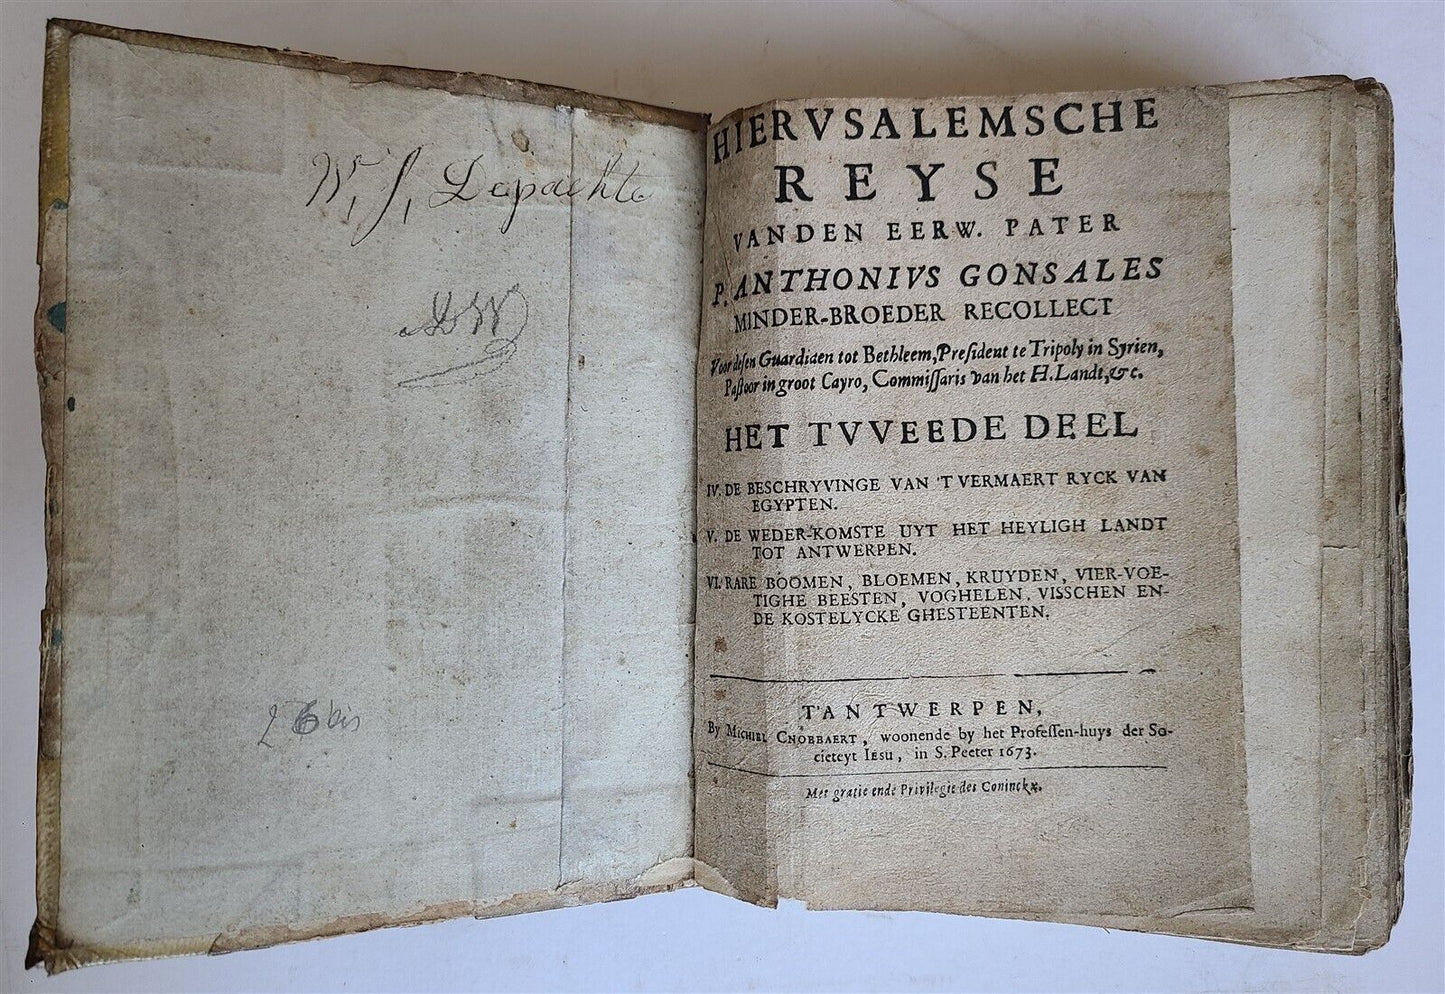 W. J. Depachte
26 bis
HIERVSALEMSCHE
REYSE
VANDEN EERW. PATER
P. ANTHONIVS GONSALES
MINDER-BROEDER RECOLLECT
Voor desen Guardiaen tot Bethleem, President te Tripoly in Syrien,
Pastoor in groot Cayro, Commissaris van het H. Landt, &c.
HET TVVEEDE DEEL
IV. DE BESCHRYVINGE VAN 'T VERMAERT RYCK VAN
EGYPTEN.
V. DE WEDER-KOMSTE UYT HET HEYLIGH LANDT
TOT ANTWERPEN.
VI. RARE BOOMEN, BLOEMEN, KRUYDEN, VIER-VOE-
TIGHE BEESTEN, VOGHELEN, VISSCHEN EN-
DE KOSTELYCKE GHESTEENTEN.
T'ANTWERPEN,
By MICHIEL CNOBBAERT, woonende by het Professen-huys der So-
cieteyt IESU, in S. Peeter 1673.
Met gratie ende Privilegie des Coninckx.